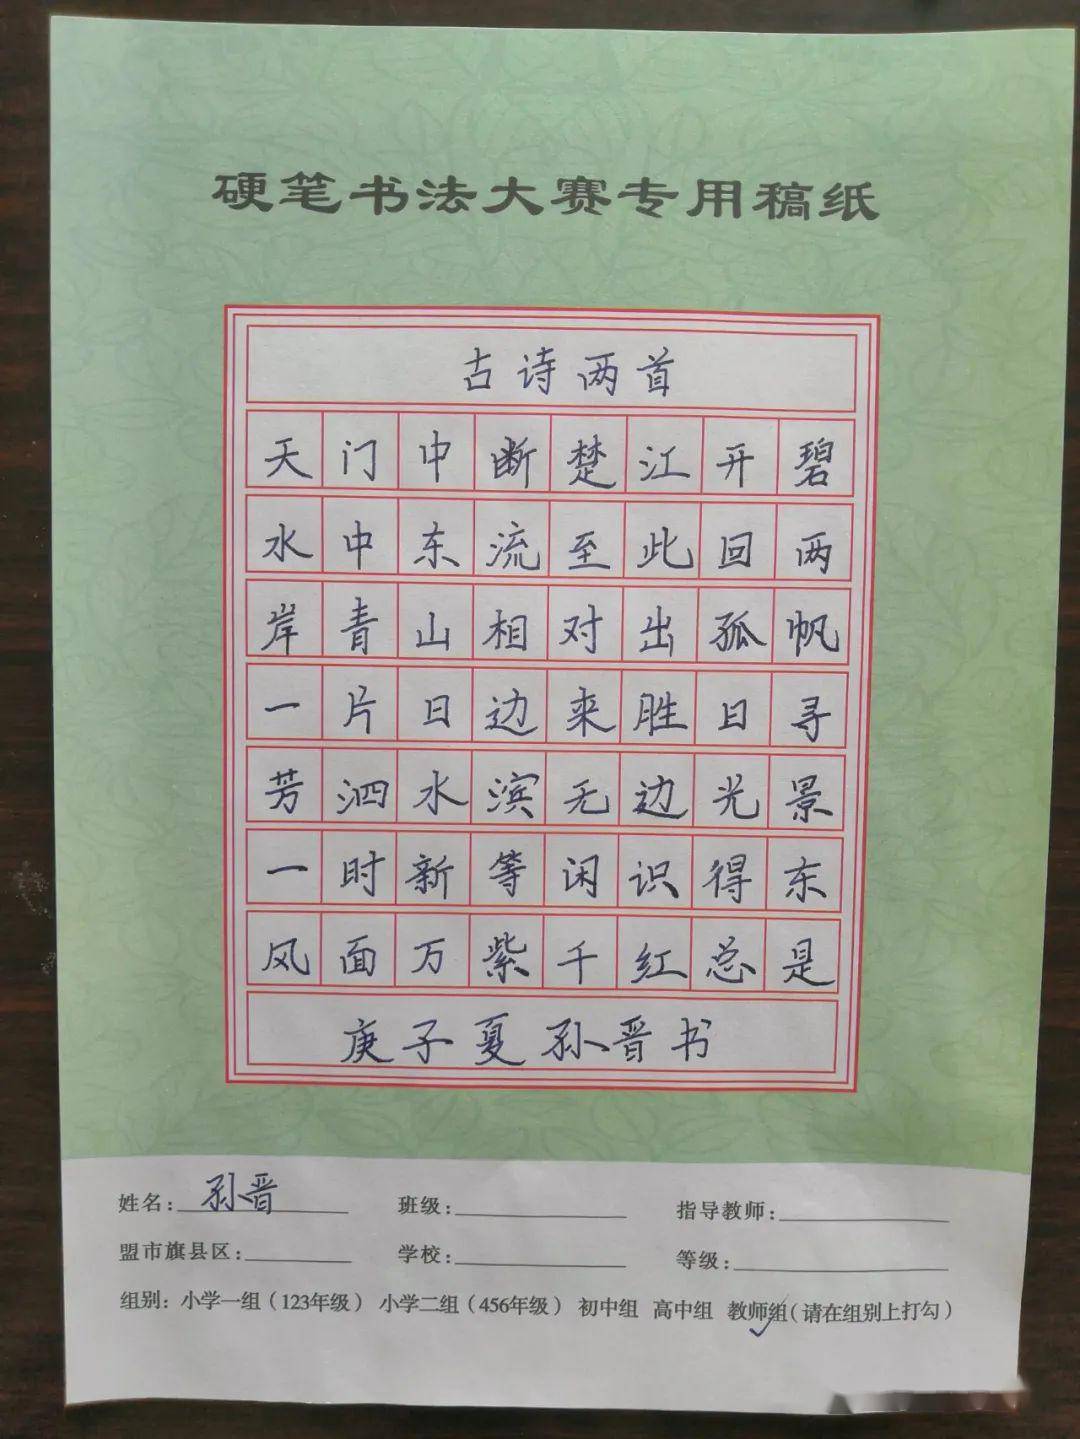 硬笔书法大赛专用稿纸
古诗两首
天门中断楚江开碧
水中东流至此回两
岸青山相对出孤帆
一片日边来胜日寻
芳泗水滨无边光景
一时新等闲识得东
风面万紫千红总是
庚子夏孙晋书
姓名：孙晋 班级： 指导教师：
盟市旗县区： 学校： 等级：
组别：小学一组（123年级） 小学二组（456年级） 初中组 高中组 教师组（请在组别上打勾）